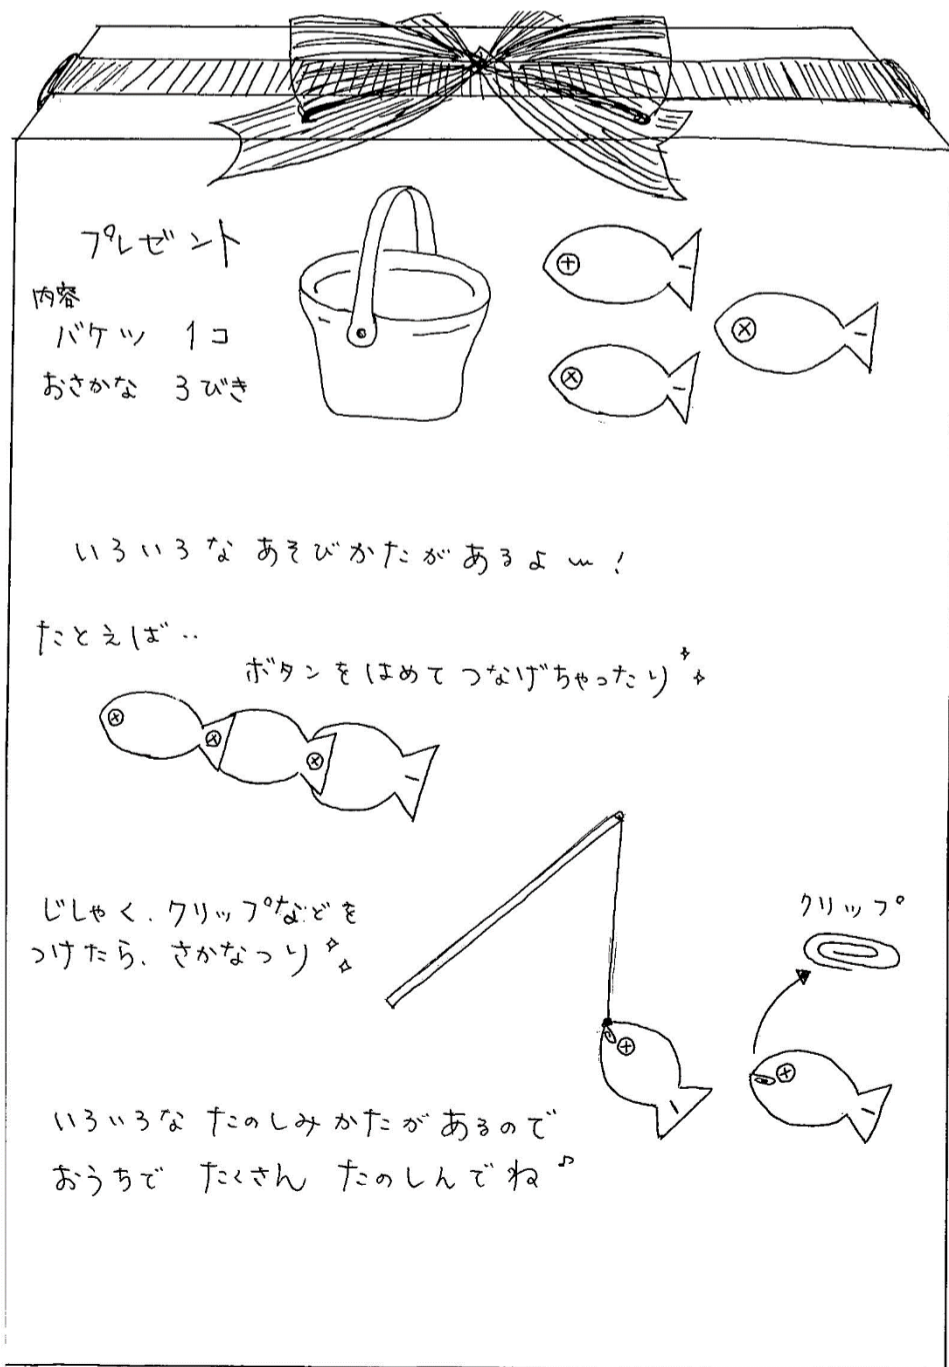 プレゼント
内容
バケツ 1コ
おさかな 3びき
いろいろな あそびかたがあるよ〜!
たとえば‥
ボタンをはめて つなげちゃったり
じしゃく、クリップなどを
つけたら、さかなつり
クリップ
いろいろな たのしみかたがあるので
おうちで たくさん たのしんでね♪